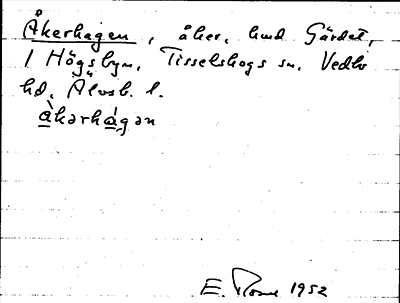 Åkerhagen, åker, hmd Gärdet,
1 Högsbyn, Tisselskogs sn, Vedbo
hd, Älvsb. l.
àkərhá̱gən
E. 1952